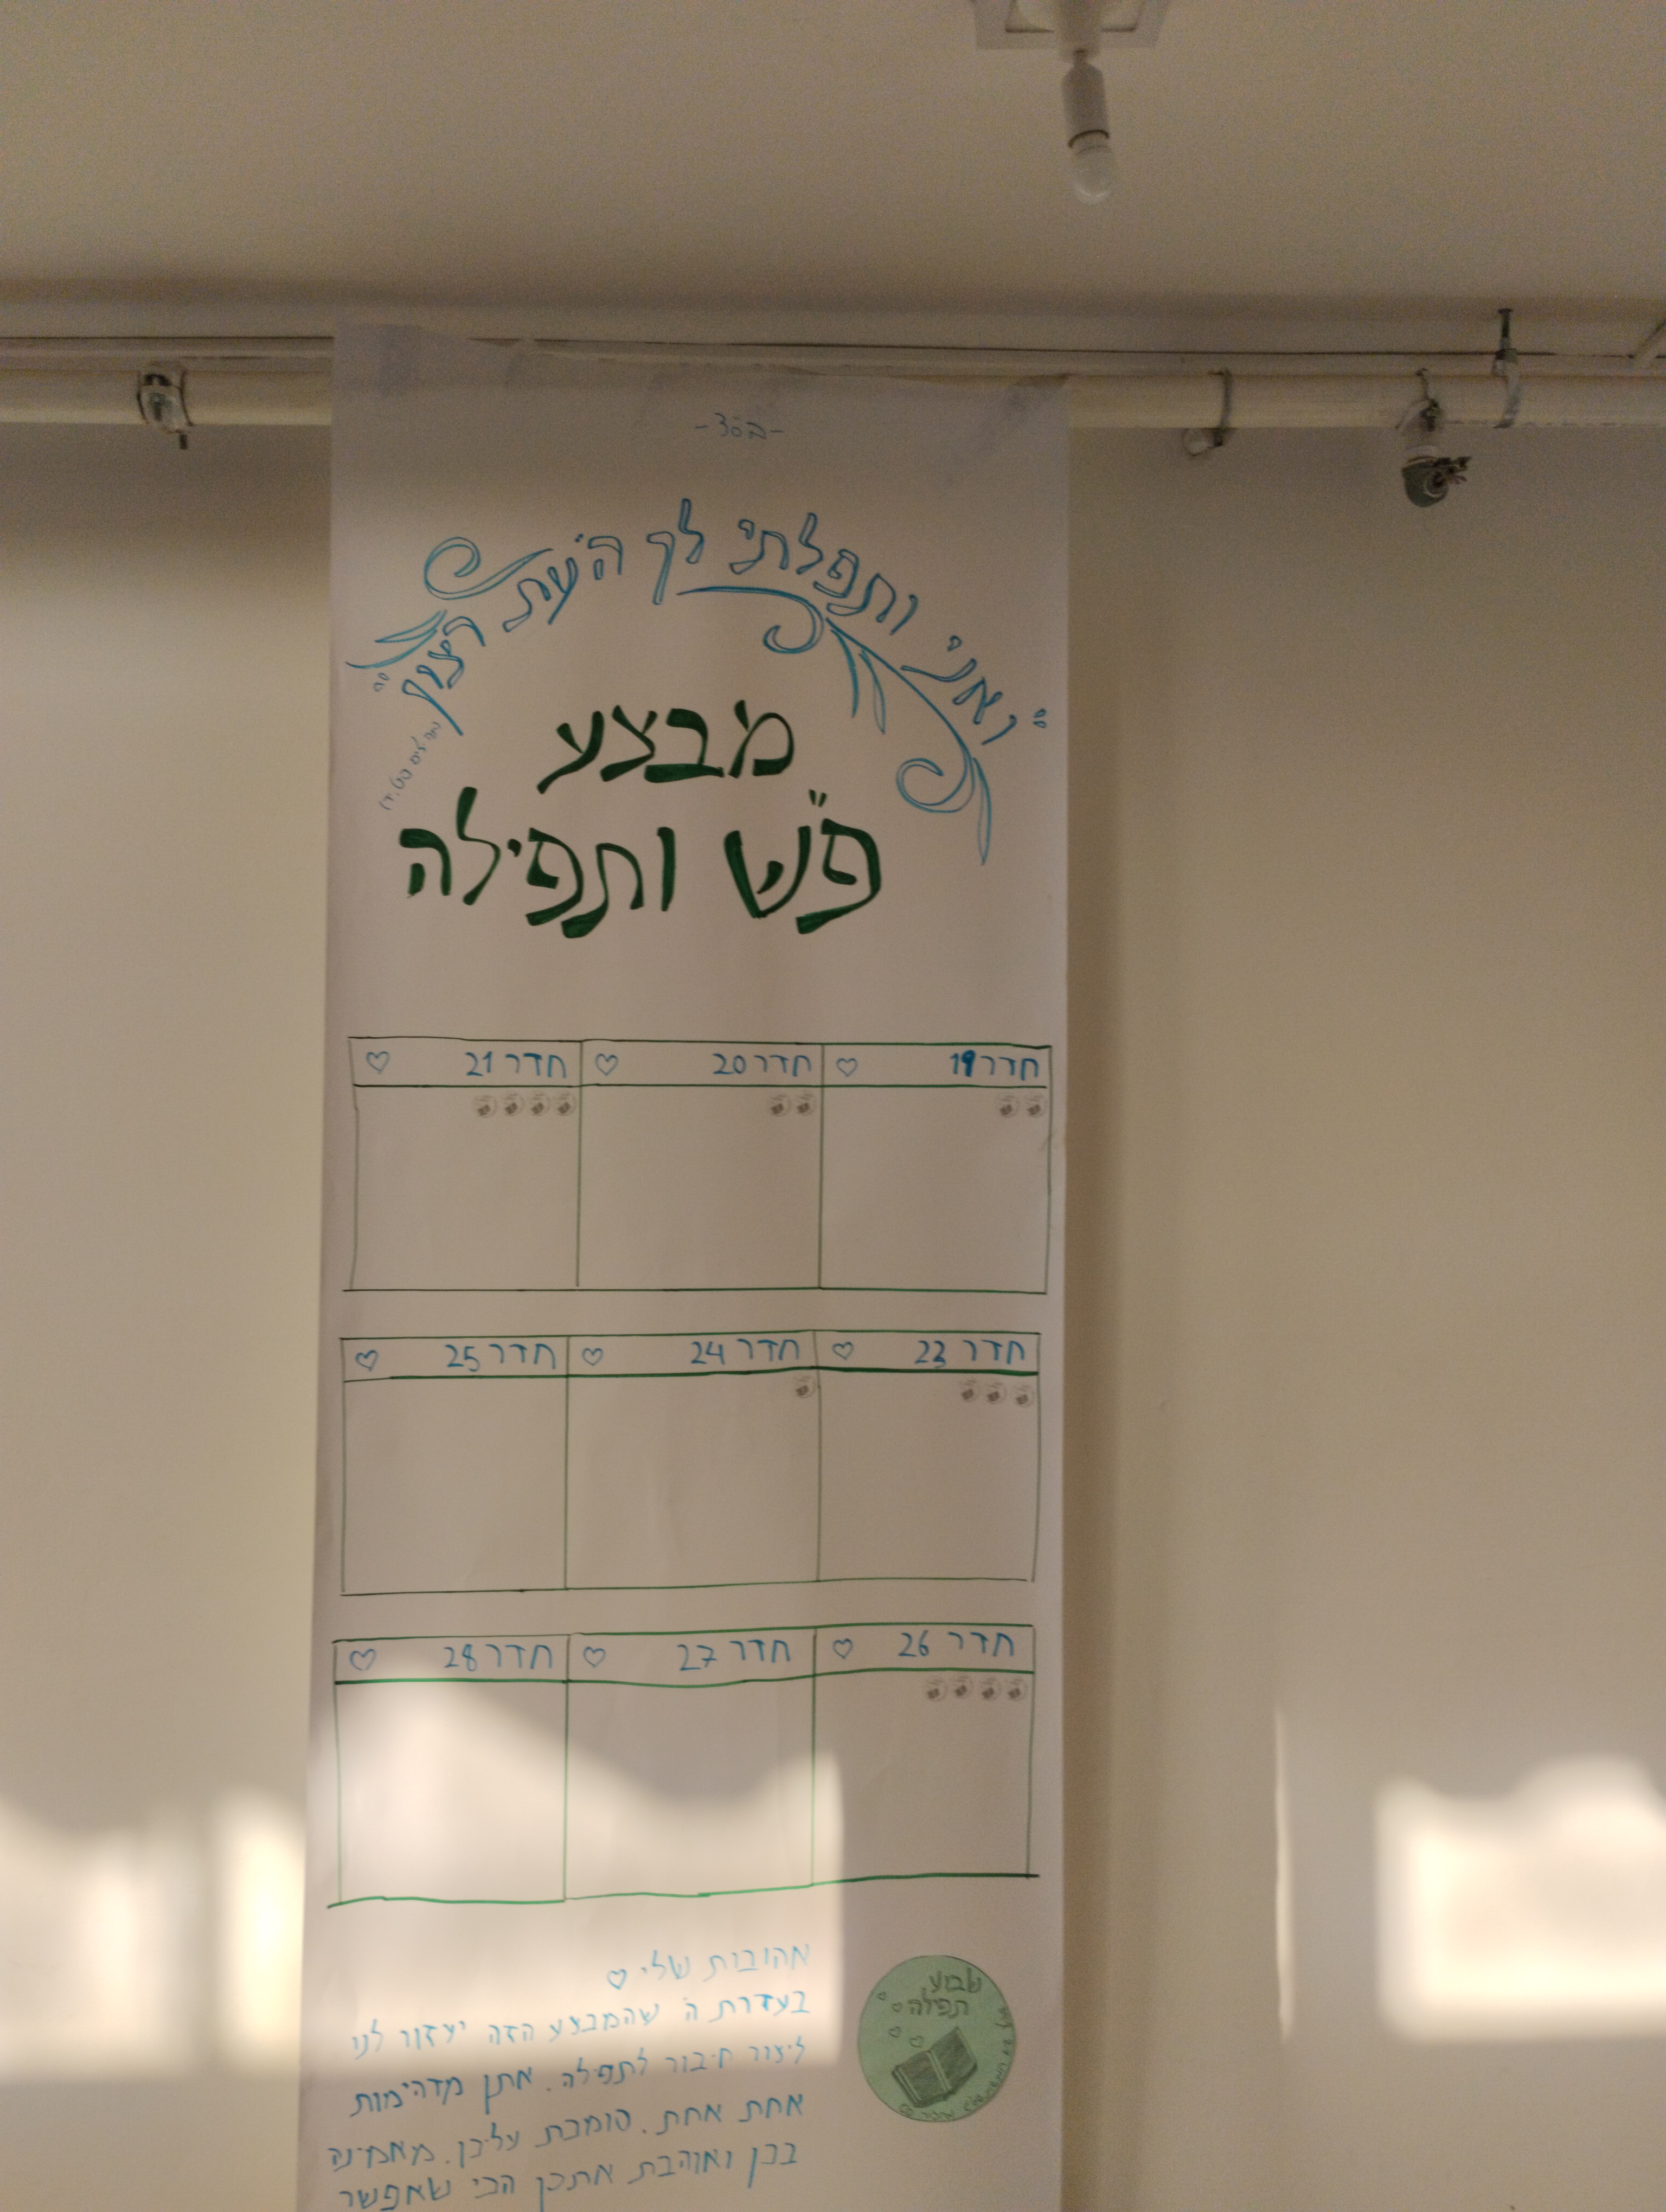 -בס"ד-
"ואני ותפלתי לך ה' עת רצון"
מבצע
פ"ש ותפילה
חדר 19 ♡
חדר 20 ♡
חדר 21 ♡
חדר 23 ♡
חדר 24 ♡
חדר 25 ♡
חדר 26 ♡
חדר 27 ♡
חדר 28 ♡
אהובות שלי ♡
בעזרת ה' שהמבצע הזה יעזור לנו
ליצור חיבור לתפילה. אתן מדהימות
אחת אחת. סומכת עליכן. מאמינה
בכן ואוהבת אתכן הכי שאפשר
שבוע
תפילה